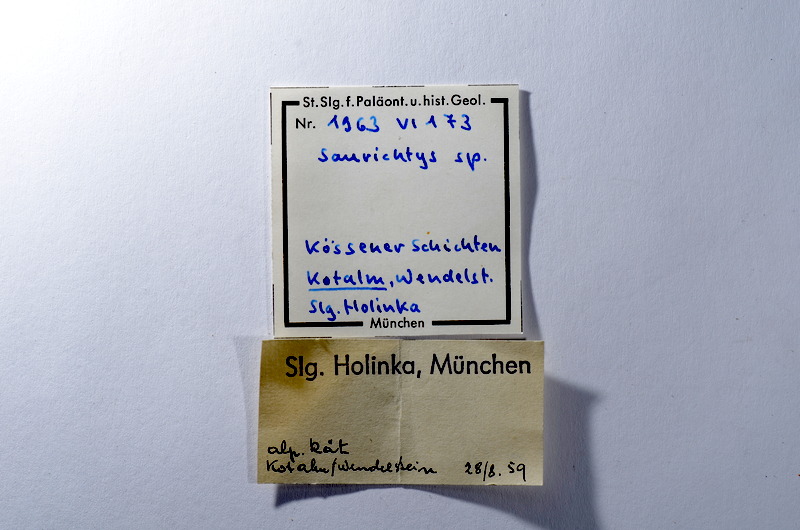 St.Slg.f.Paläont.u.hist.Geol.
Nr. 1963 VI 173
Saurichtys sp.
Kössener Schichten
Kotalm, Wendelst.
Slg. Holinka
München
Slg. Holinka, München
alp. Rät
Kotalm/Wendelstein 28/8.59